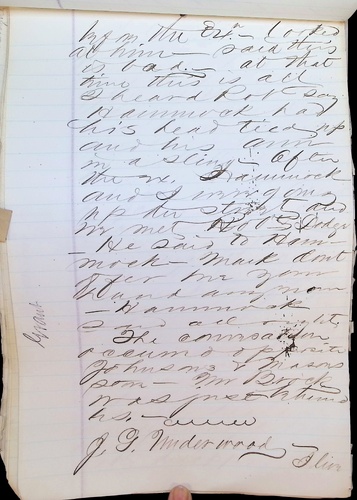 by in the Ex.n - looked
at him - said this
is bad. - at that
time this is all
I heard Rob say
Hammock had
his head tied up
and his arm
in a sling - After
the Hammock
and I was going
up the street and
we met Rob
- He said to Ham-
mock - Mack dont
after me your
hand any more
- Hammock
said all right.
The conversation
occurred opposite
Johnson & Masons
- Mr Brock
was just behind
us. -
J. G. Underwood
Grant